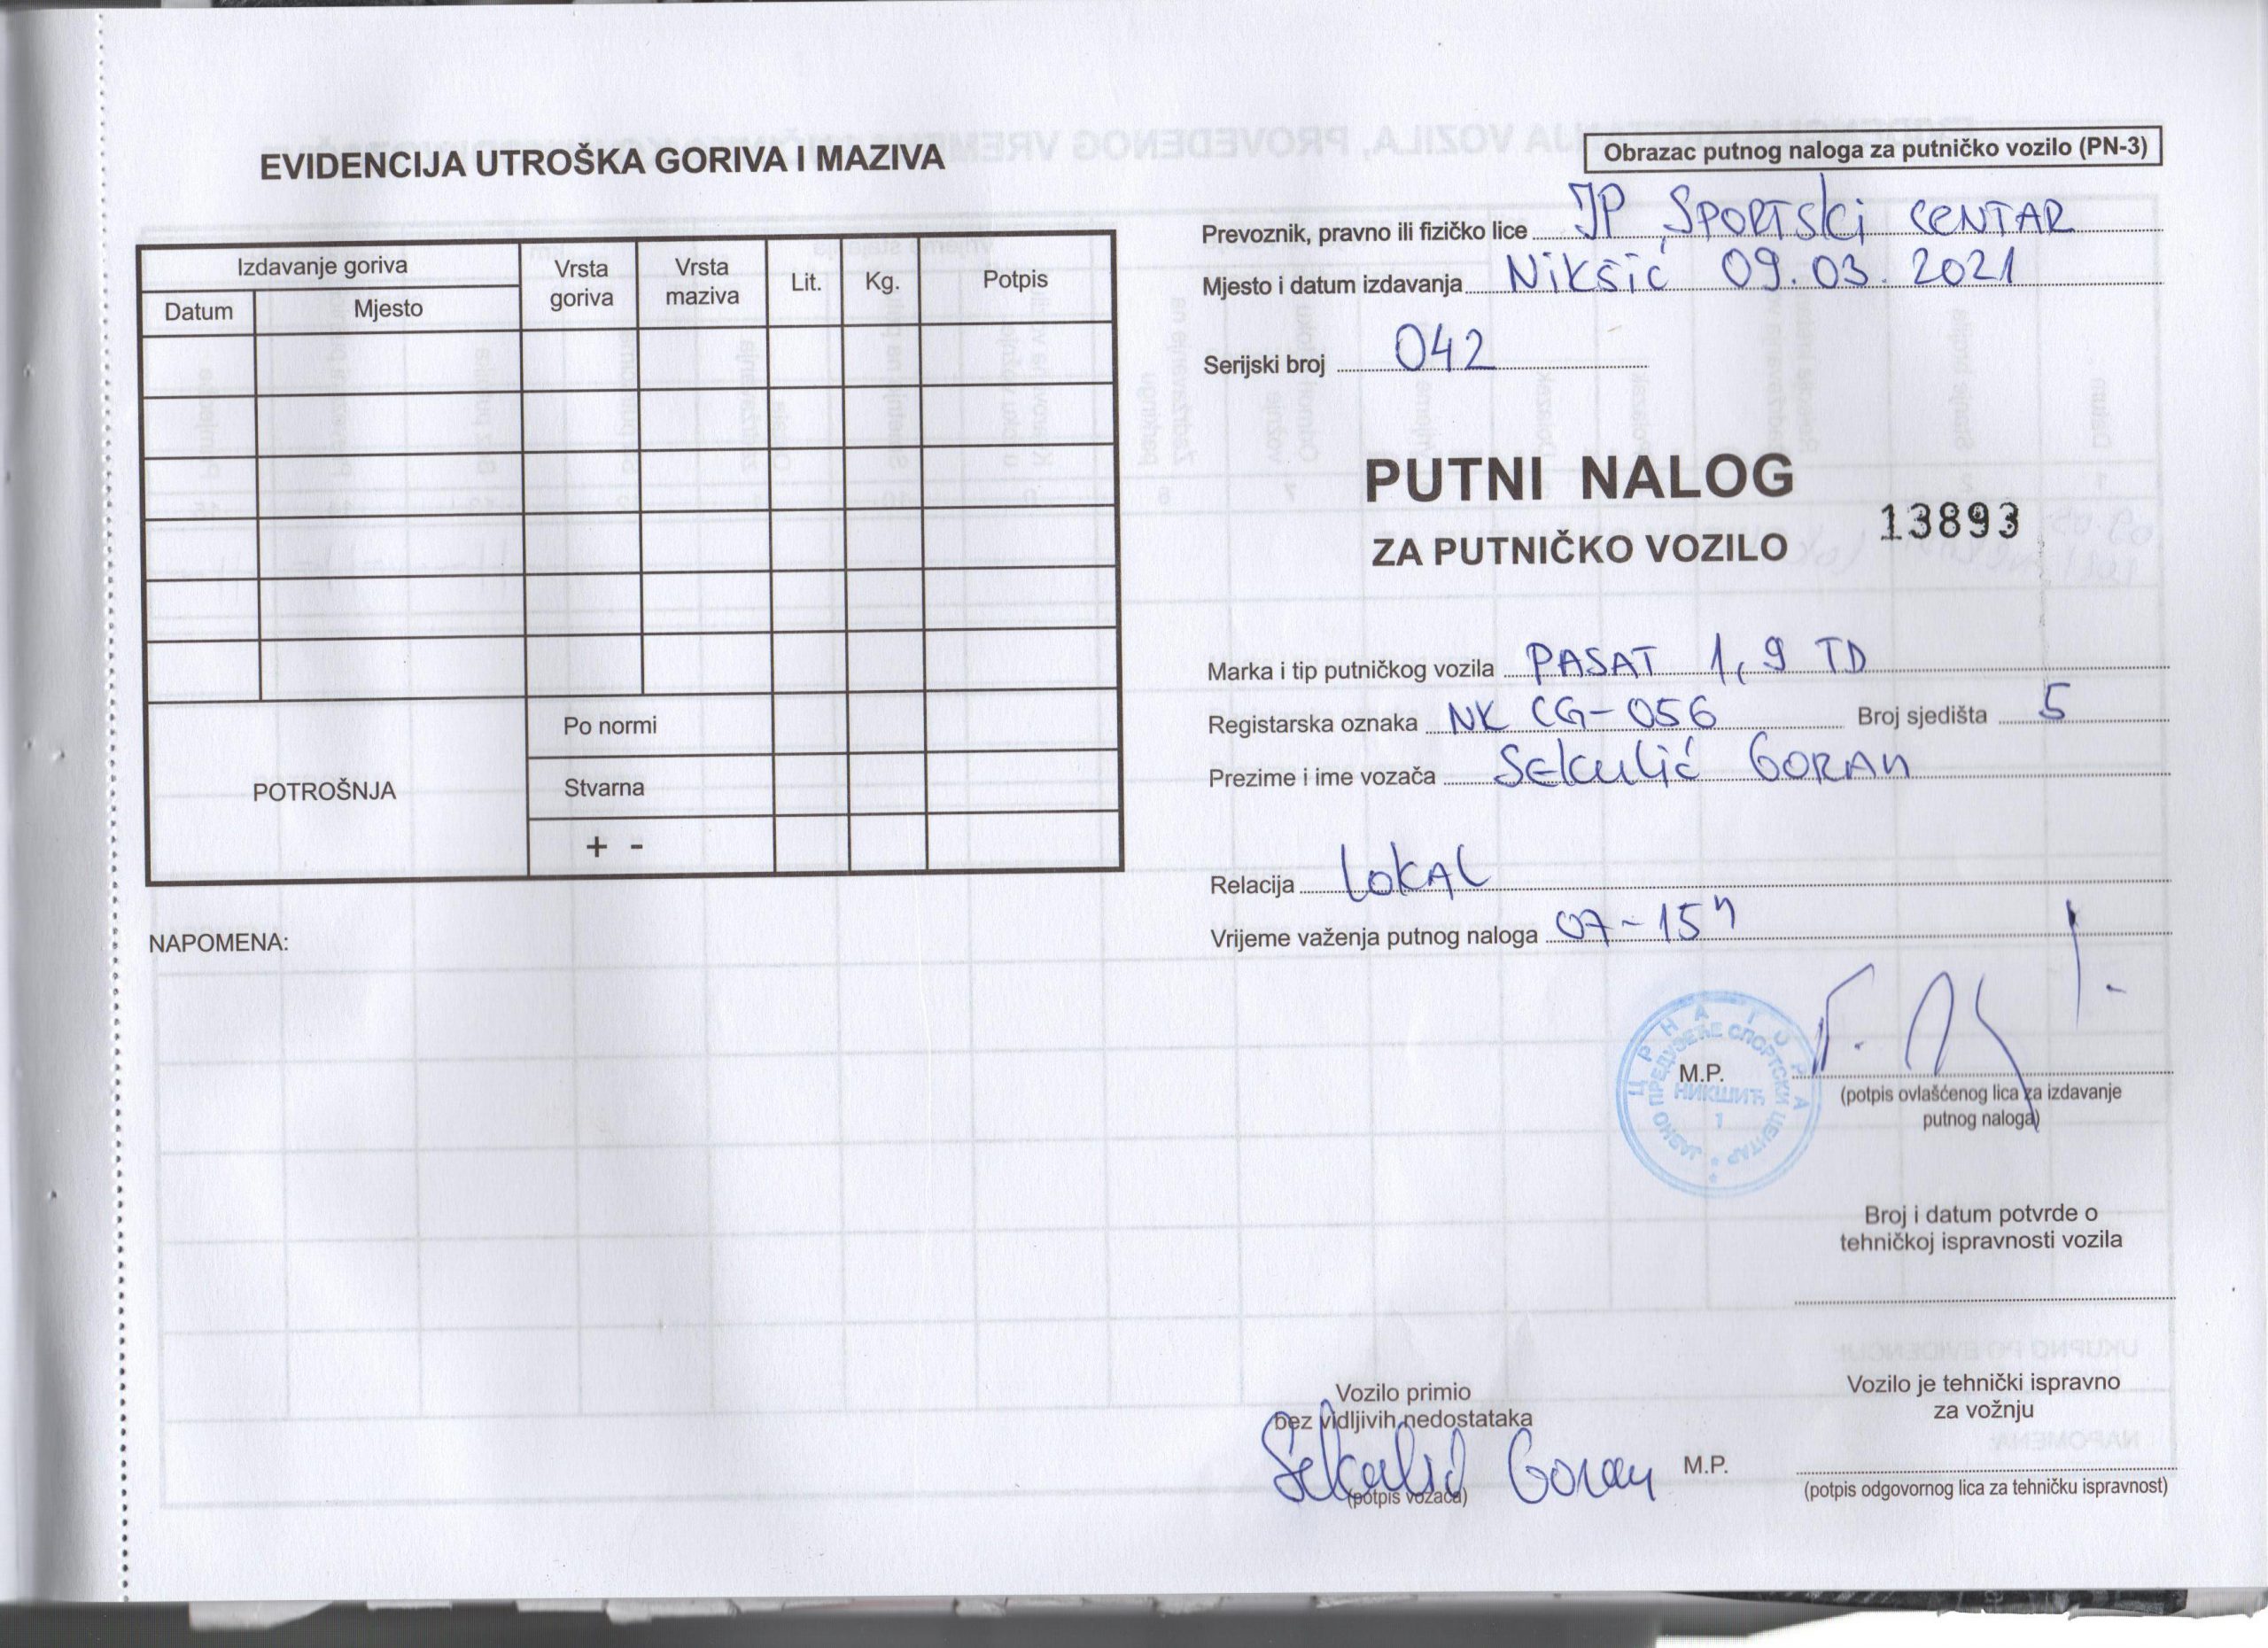 EVIDENCIJA UTROŠKA GORIVA I MAZIVA
Izdavanje goriva
Datum
Mjesto
Vrsta goriva
Vrsta maziva
Lit.
Kg.
Potpis
POTROŠNJA
Po normi
Stvarna
+ -
NAPOMENA:
Obrazac putnog naloga za putničko vozilo (PN-3)
Prevoznik, pravno ili fizičko lice JP SPORTSKI CENTAR
Mjesto i datum izdavanja Nikšić 09.03.2021
Serijski broj 042
PUTNI NALOG
ZA PUTNIČKO VOZILO
13893
Marka i tip putničkog vozila PASAT 1,9 TD
Registarska oznaka NK CG-056 Broj sjedišta 5
Prezime i ime vozača Sekulić Goran
Relacija LOKAL
Vrijeme važenja putnog naloga 07-15h
ЦРНА ГОРА
ЈАВНО ПРЕДУЗЕЋЕ СПОРТСКИ ЦЕНТАР
НИКШИЋ
1
M.P.
(potpis ovlašćenog lica za izdavanje
putnog naloga)
Broj i datum potvrde o
tehničkoj ispravnosti vozila
Vozilo primio
bez vidljivih nedostataka
Sekulić Goran
(potpis vozača)
M.P.
Vozilo je tehnički ispravno
za vožnju
(potpis odgovornog lica za tehničku ispravnost)